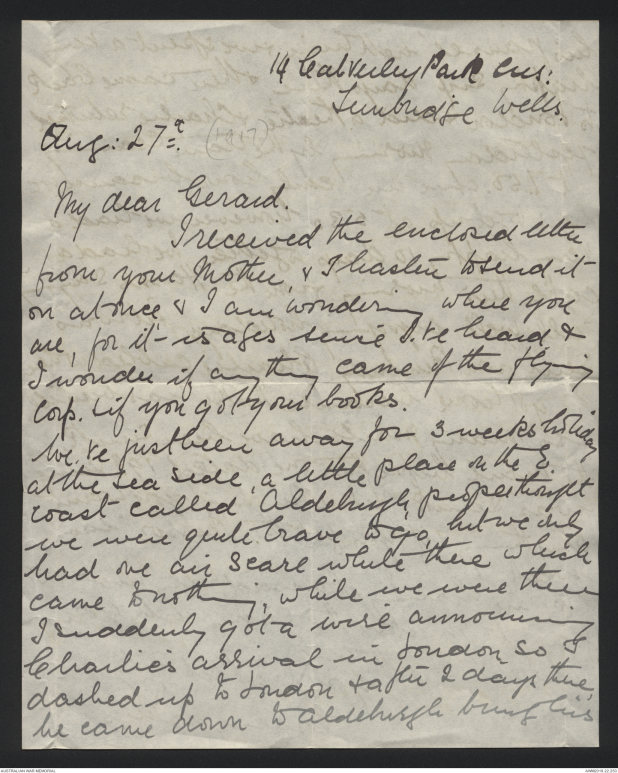 14 Calverley Park Cres:
Tunbridge Wells.
Aug: 27th. (1917)
My dear Gerard.
I received the enclosed letter
from your Mother, & I hasten to send it
on at once & I am wondering where you
are, for it is ages sence I've heard, &
I wonder if anything came of the flying
Corp. & if you got your books.
We've just been away for 3 weeks holiday
at the sea side, a little place on the E.
coast called Aldeburgh, people thought
we were quite brave to go, but we only
had one air scare while there which
came to nothing, while we were there
I suddenly got a wire announcing
Charlie's arrival in London so I
dashed up to London & after 2 days there,
he came down to Aldeburgh being his
AUSTRALIAN WAR MEMORIAL